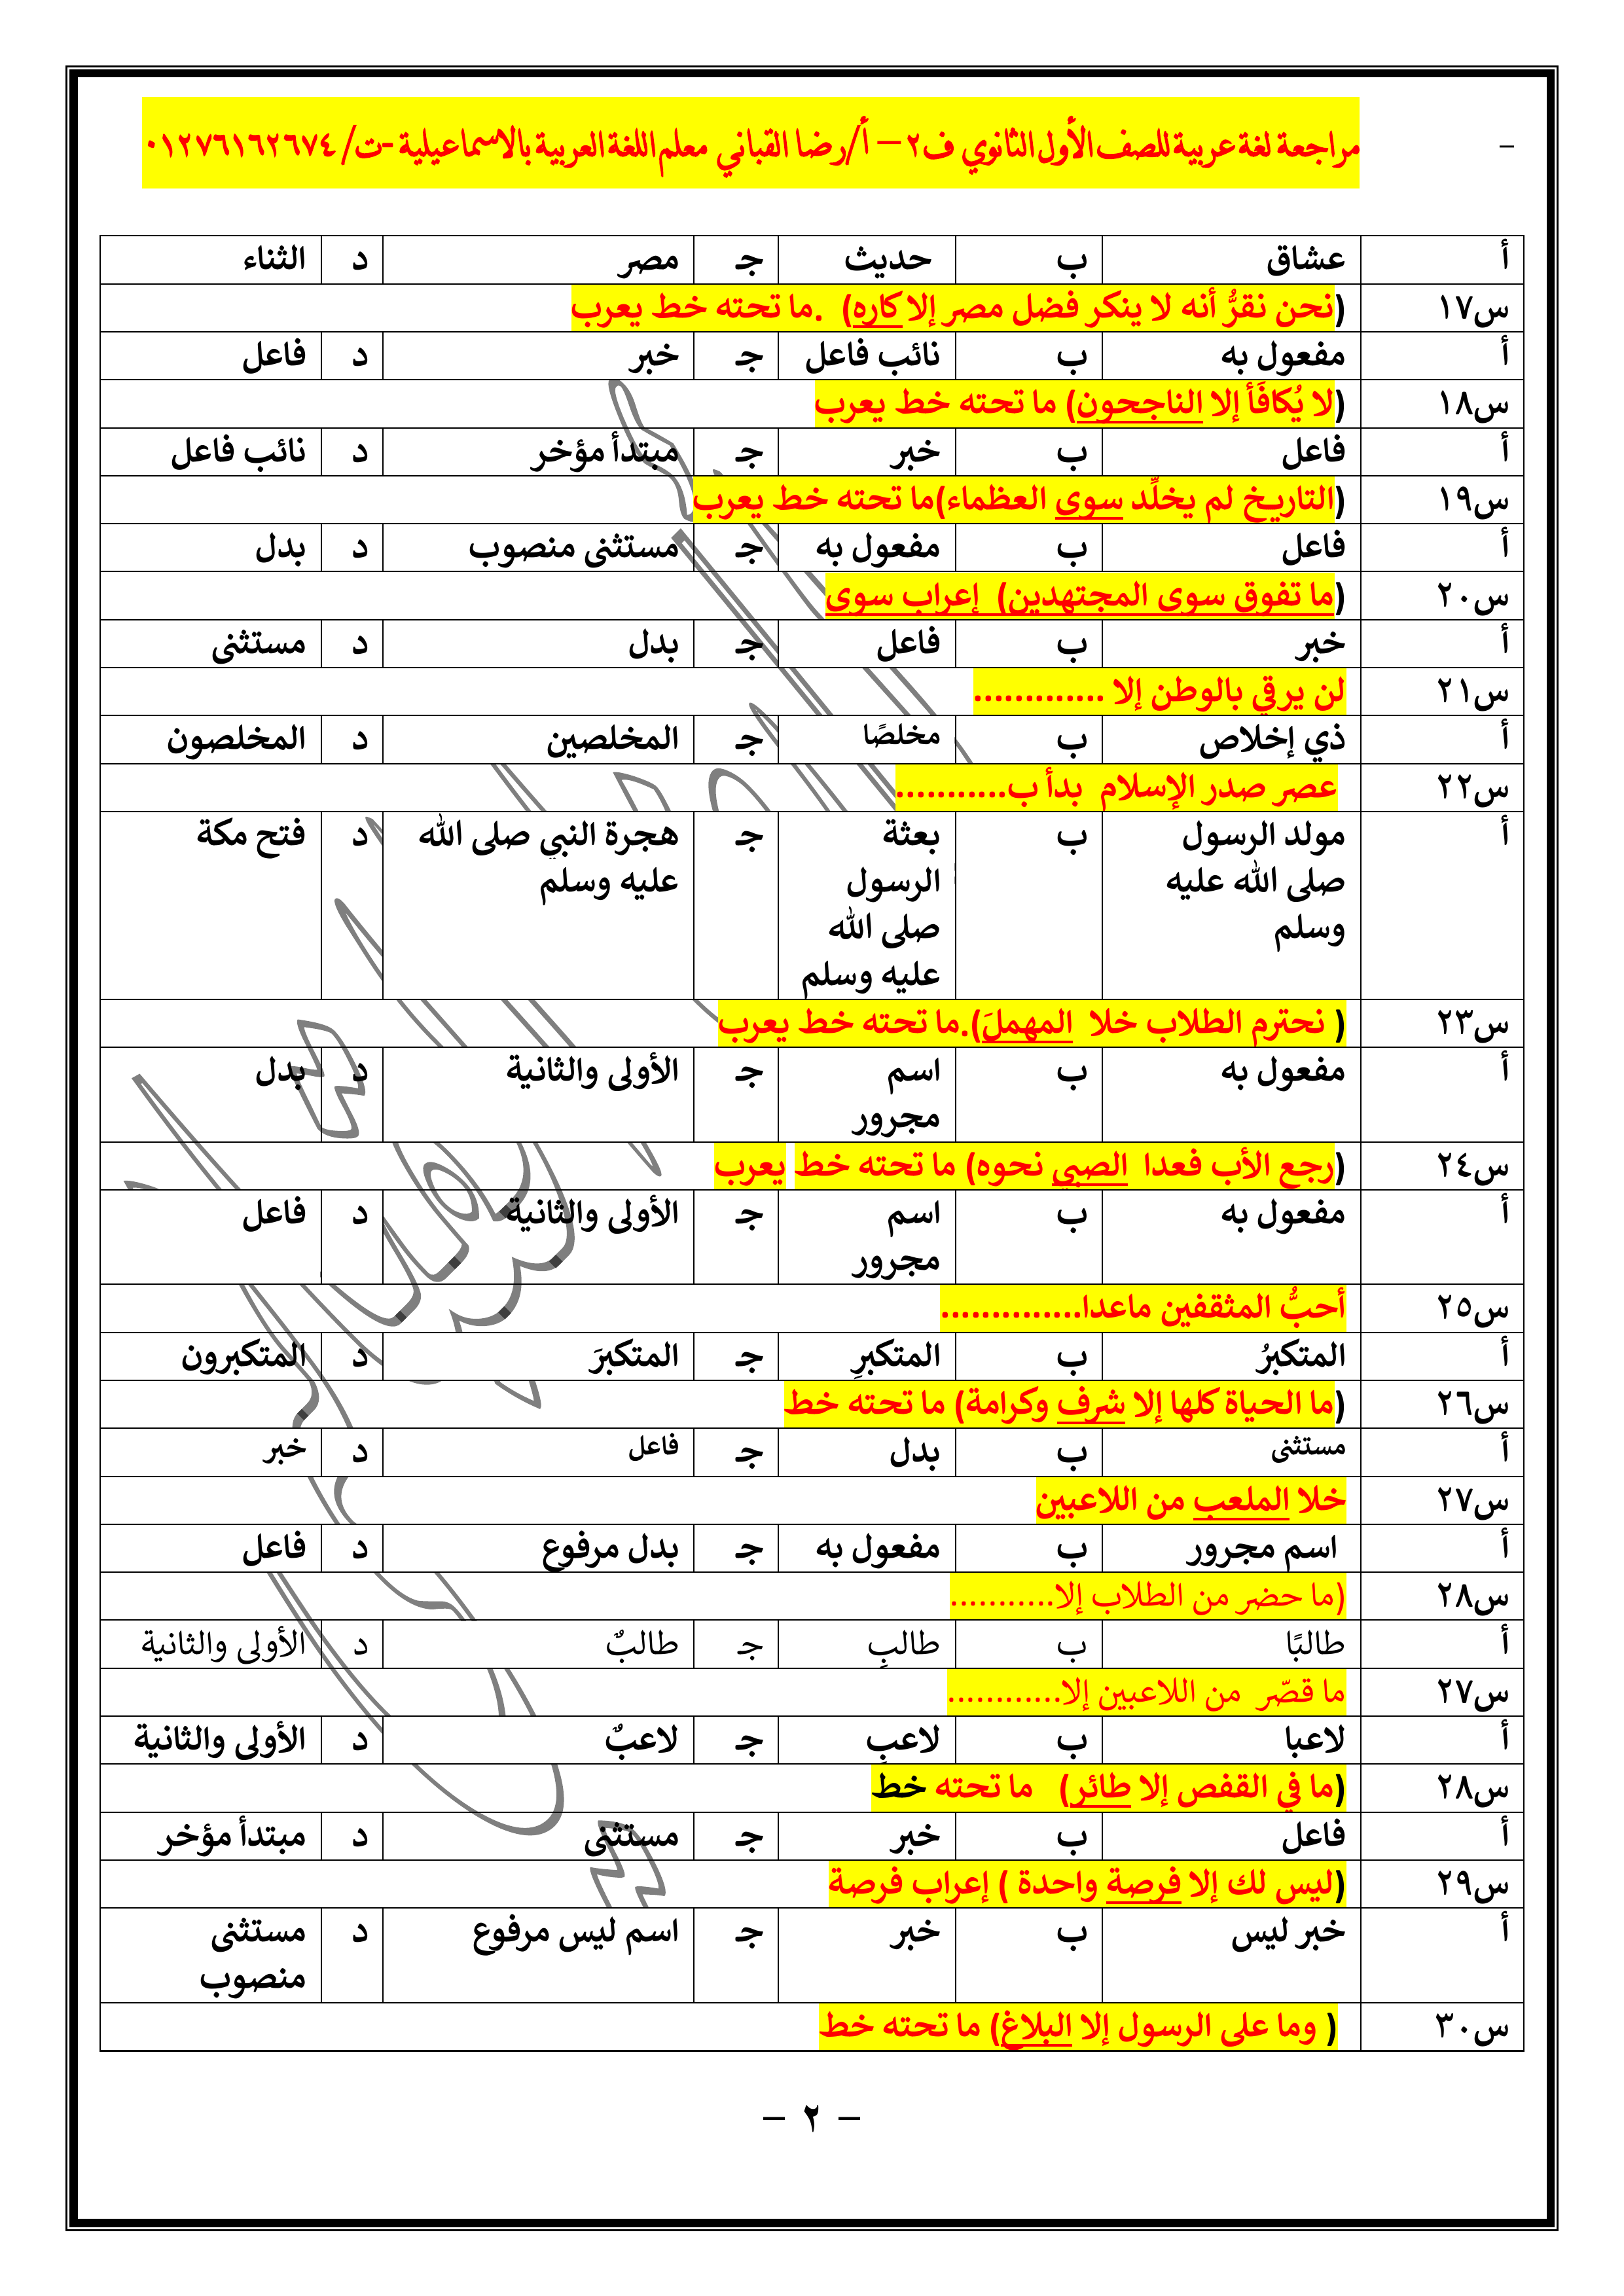 مراجعة لغة عربية للصف الأول الثانوي ف٢ – أ/رضا القباني معلم اللغة العربية بالاسماعيلية -ت/ ٠١٢٧٦١٦٢٦٧٤
–
أ عشاق ب حديث جـ مصر د الثناء
س١٧ (نحن نقرُّ أنه لا ينكر فضل مصر إلا كاره) .ما تحته خط يعرب
أ مفعول به ب نائب فاعل جـ خبر د فاعل
س١٨ (لا يُكافَأ إلا الناجحون) ما تحته خط يعرب
أ فاعل ب خبر جـ مبتدأ مؤخر د نائب فاعل
س١٩ (التاريخ لم يخلِّد سوى العظماء)ما تحته خط يعرب
أ فاعل ب مفعول به جـ مستثنى منصوب د بدل
س٢٠ (ما تفوق سوى المجتهدين) إعراب سوى
أ خبر ب فاعل جـ بدل د مستثنى
س٢١ لن يرقي بالوطن إلا .............
أ ذي إخلاص ب مخلصًا جـ المخلصين د المخلصون
س٢٢ عصر صدر الإسلام بدأ ب...........
أ مولد الرسول ب بعثة جـ هجرة النبي صلى الله د فتح مكة
صلى الله عليه الرسول عليه وسلم
وسلم صلى الله
عليه وسلم
س٢٣ ( نحترم الطلاب خلا المهملَ).ما تحته خط يعرب
أ مفعول به ب اسم جـ الأولى والثانية د بدل
مجرور
س٢٤ (رجع الأب فعدا الصبي نحوه) ما تحته خط يعرب
أ مفعول به ب اسم جـ الأولى والثانية د فاعل
مجرور
س٢٥ أحبُّ المثقفين ماعدا..............
أ المتكبرُ ب المتكبرِ جـ المتكبرَ د المتكبرون
س٢٦ (ما الحياة كلها إلا شرف وكرامة) ما تحته خط
أ مستثنى ب بدل جـ فاعل د خبر
س٢٧ خلا الملعب من اللاعبين
أ اسم مجرور ب مفعول به جـ بدل مرفوع د فاعل
س٢٨ (ما حضر من الطلاب إلا...........
أ طالبًا ب طالبِ جـ طالبٌ د الأولى والثانية
س٢٧ ما قصّر من اللاعبين إلا............
أ لاعبا ب لاعبِ جـ لاعبٌ د الأولى والثانية
س٢٨ (ما في القفص إلا طائر) ما تحته خط
أ فاعل ب خبر جـ مستثنى د مبتدأ مؤخر
س٢٩ (ليس لك إلا فرصة واحدة ) إعراب فرصة
أ خبر ليس ب خبر جـ اسم ليس مرفوع د مستثنى
منصوب
س٣٠ ( وما على الرسول إلا البلاغ) ما تحته خط
– ٢ –